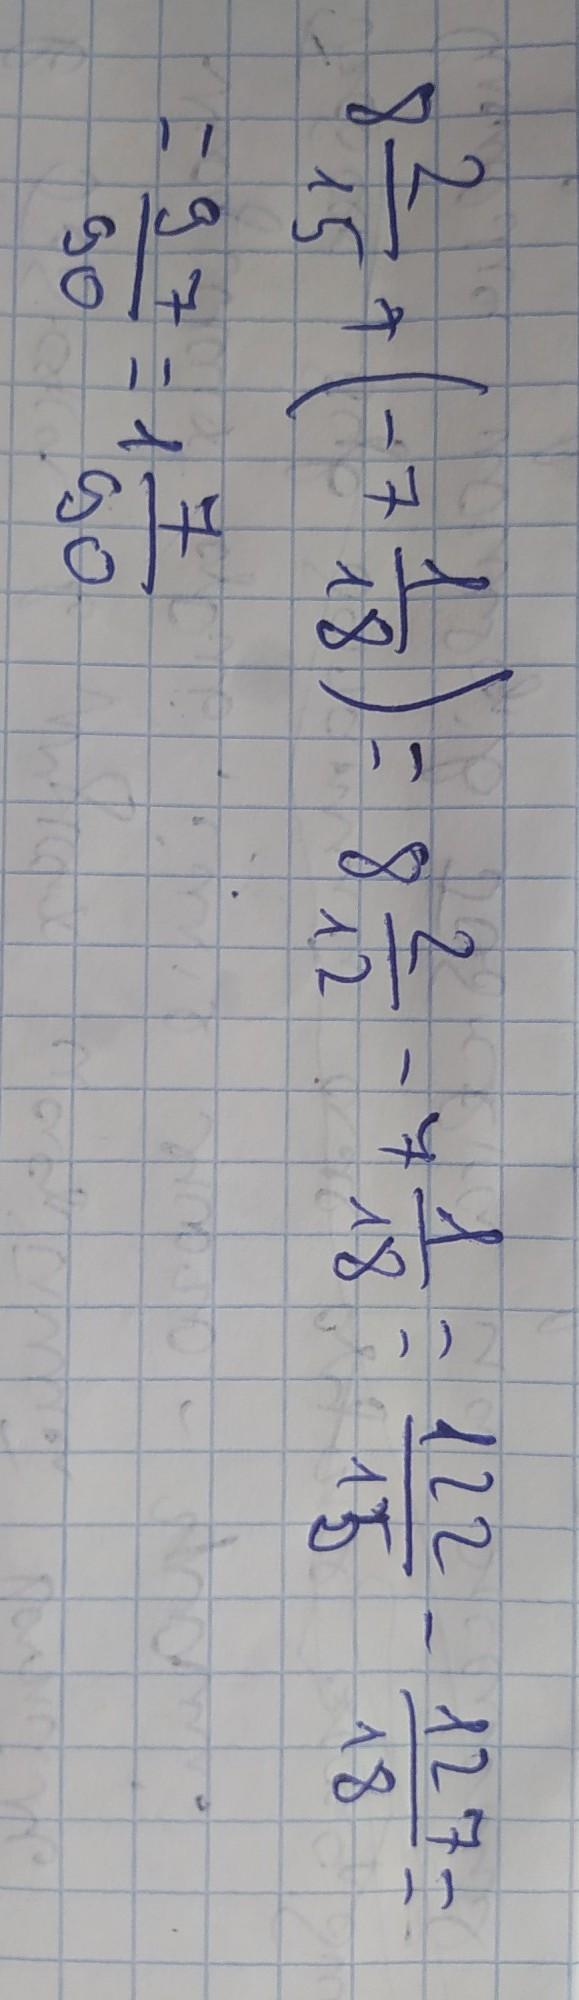 8 2/15 + (-7 1/18) = 8 2/12 - 7 1/18 = 122/15 - 127/18 =
= 97/90 = 1 7/90